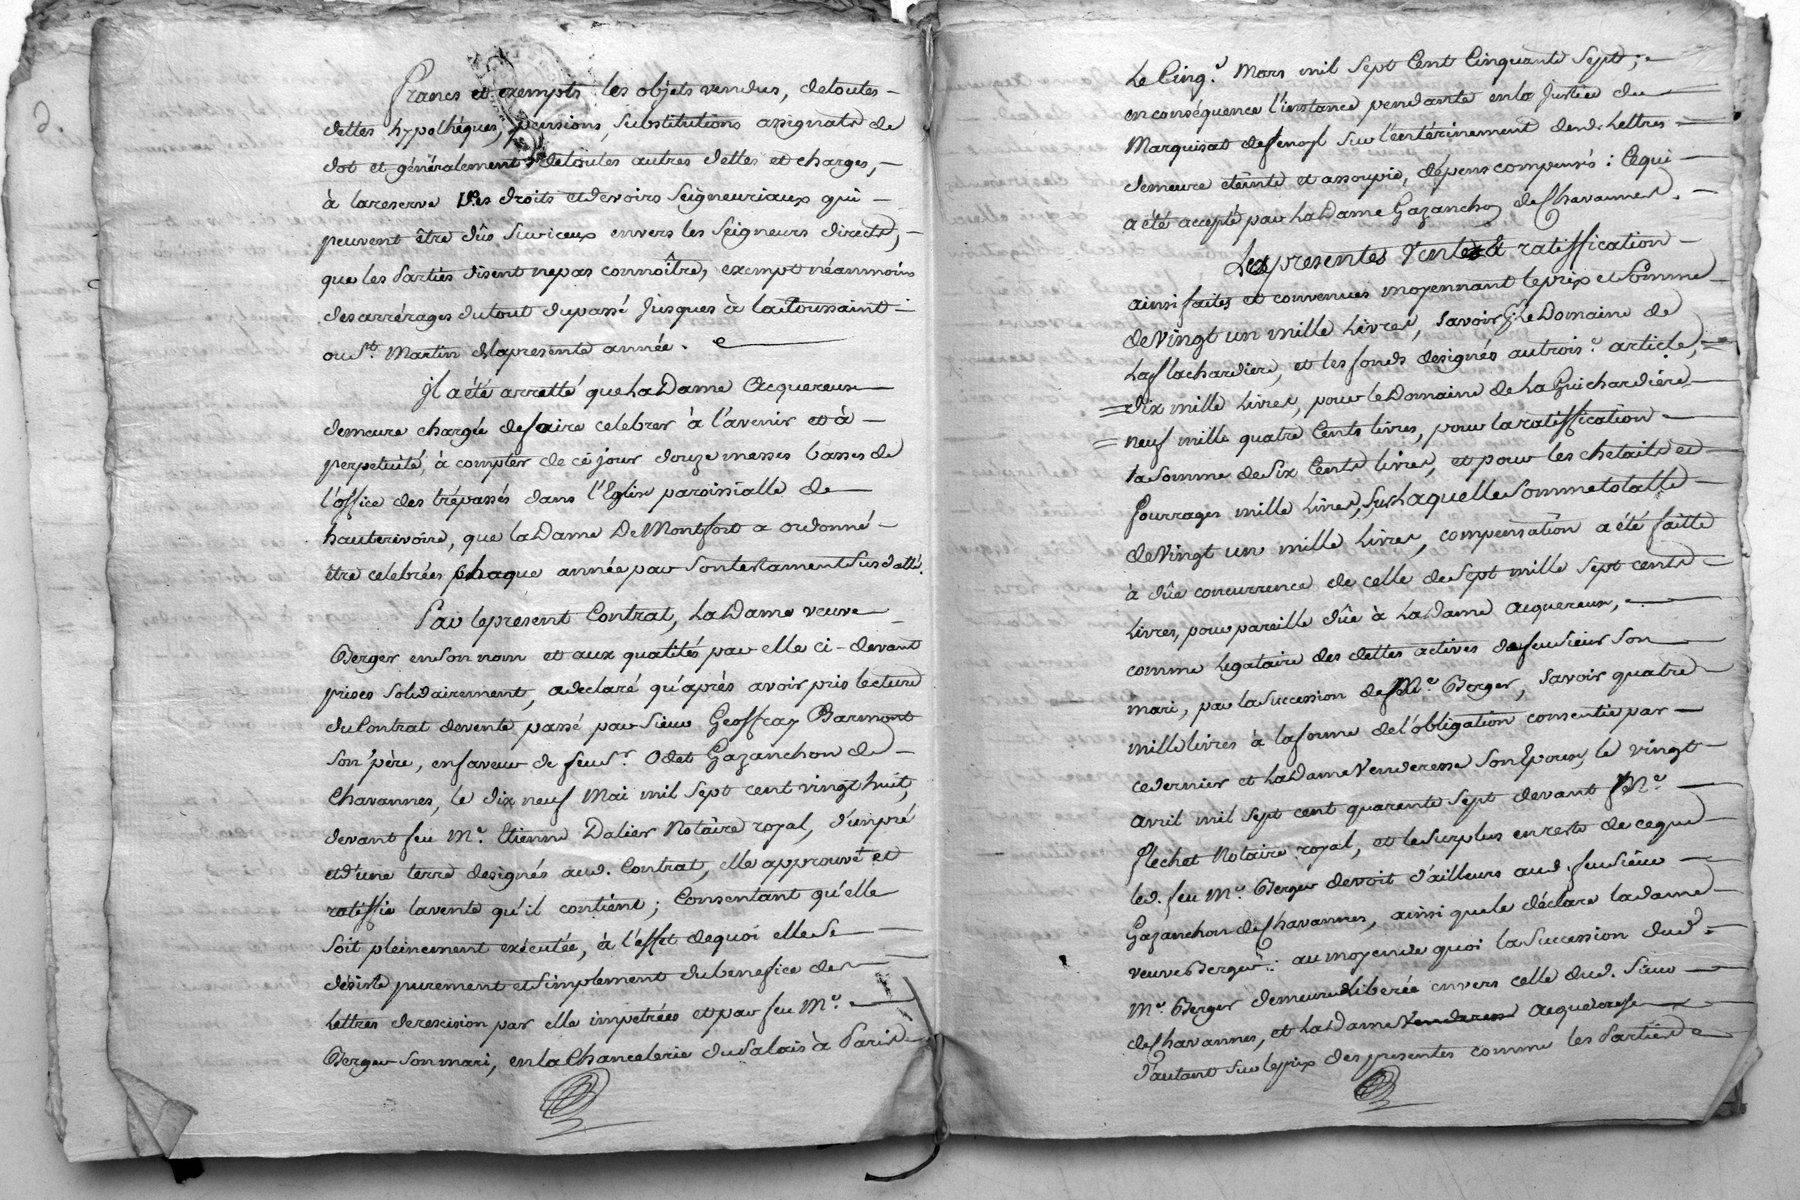 2.
francs et exempts les objets vendus, detoutes
dettes hypothèques, pensions, substitutions assignats de
dot et généralement detoutes autres dettes et charges,
à lareserve des droits etdevoirs Seigneuriaux qui
peuvent être dûs suriceux envers les seigneurs directs,
que les parties disent nepas connoître, exempt néanmoins
desarrérages dutout dupassé jusques à latoussaint
ou St. Martin delapresente année.
Il aété arretté que La Dame acquereuse
demeure chargée defaire celebrer à l'avenir et à
perpetuité, à compter de cejour douze messes basses de
l'office des trépassés dans l'Eglise paroissialle de
hauterivoire, que la Dame De Montfort a ordonné
être celebrées chaque année par sontestament susdatté.
Par leprésent Contrat, La Dame veuve
Berger ensonnom et aux qualités par elle ci-devant
prises solidairement, adeclaré qu'après avoir pris lecture
duContrat devente passé par sieur Geoffray Barmont
son père, enfaveur de feu Sr. Odet Gazanchon de
Chavannes, le dix neuf Mai mil sept cent vingt huit,
devant feu Me. Etienne Dalier Notaire royal, d'unpré
etd'une terre designés aud. Contrat, elle approuve et
ratiffie lavente qu'il contient; Consentant qu'elle
soit pleinement exécutée, à l'effet dequoi elle se
désiste purement etsimplement dubenefice des
Lettres derescision par elle impetrées et par feu Me.
Berger son mari, en la Chancelerie du Palais à Paris
Le Cinq.e Mars mil sept Cent Cinquante sept;
en conséquence l'instance pendante enla Justice du
Marquisat de sur l'entérinement desd. Lettres
demeure éteinte et assoupie, dépens compensés: Cequi
a été accepté par La Dame Gazanchon de Chavannes.
Les presentes Vente et ratiffication
ainsi faites et convenues moyennant leprix et Somme
de Vingt un mille Livres, savoir: Le Domaine de
La flachardiere, et les fonds designés au trois.e article,
dix mille Livres, pour le Domaine de La Guichardière
neuf mille quatre Cents livres, pour la ratiffication
la somme de Six Cents livres, et pour les chetails et
fourrages mille Livres, sur Laquelle Somme totalle
de Vingt un mille Livres, compensation a été faitte
à dûe concurrence de celle de Sept mille sept cents
Livres, pour pareille dûe à La Dame acquereuse,
comme Legataire des dettes actives defeu sieur son
mari, par la succession de Me. Berger, savoir quatre
mille livres à laforme de l'obligation consentie par
cedernier et La Dame Venderesse son Epouse, le vingt
avril mil sept cent quarente sept devant Me.
flechet Notaire royal, et le surplus enreste de ceque
led. feu Me. Berger devoit d'ailleurs aud. feu sieur
Gazanchon de Chavannes, ainsi que le déclare la dame
veuve Berger: au moyen de quoi la succession dud.
Me. Berger demeure libérée envers celle dud. Sieur
de Chavannes, et La Dame Venderesse acquereuse
d'autant sur leprix des presentes comme les Parties